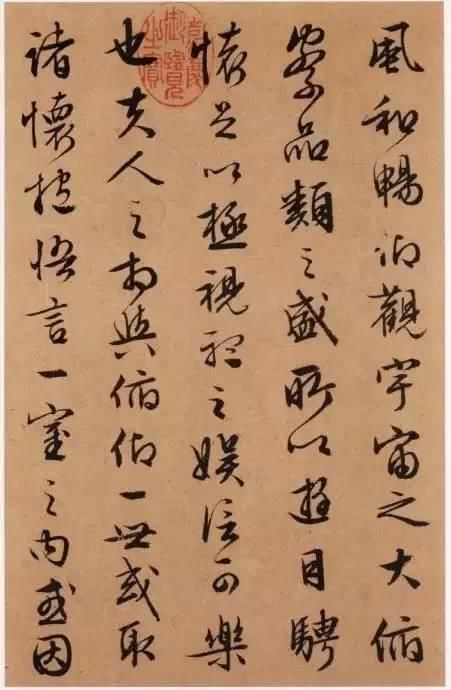 風和暢仰觀宇宙之大俯
察品類之盛所以遊目騁
懷足以極視聽之娛信可樂
也夫人之相與俯仰一世或取
諸懷抱悟言一室之內或因
御覽之寶